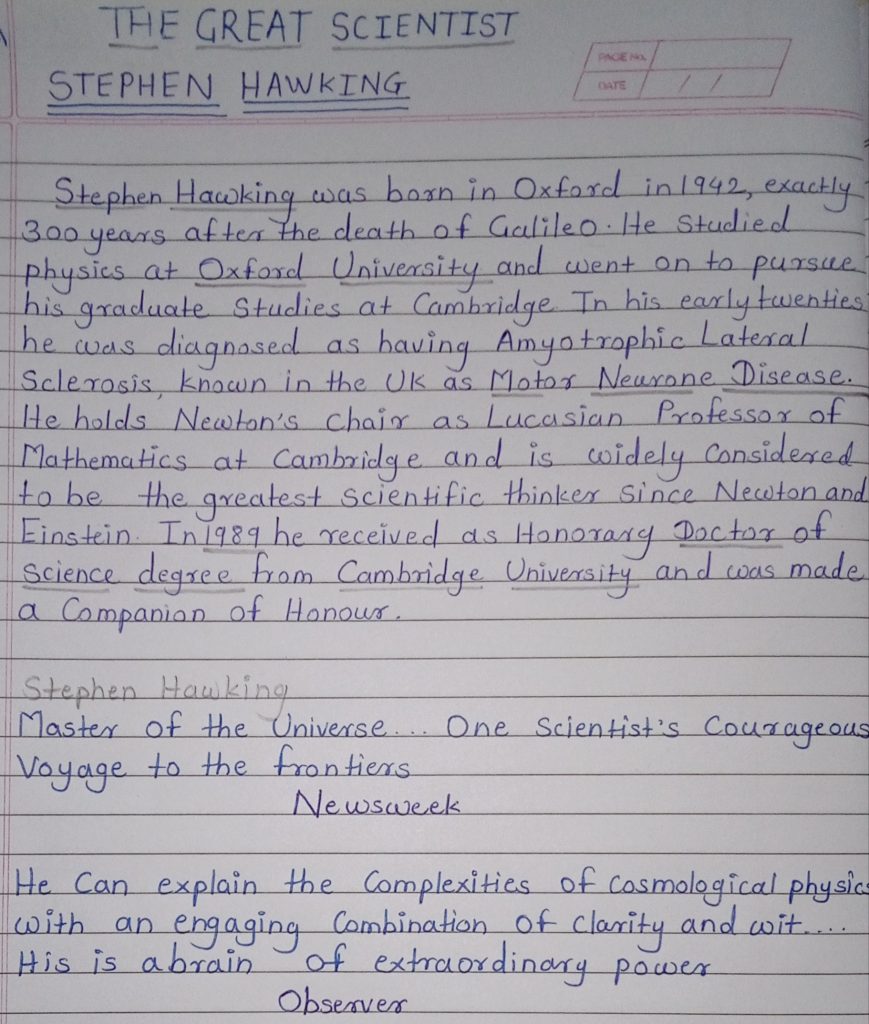 THE GREAT SCIENTIST
STEPHEN HAWKING
PAGE NO.
DATE / /
Stephen Hawking was born in Oxford in 1942, exactly
300 years after the death of Galileo. He Studied
physics at Oxford University and went on to pursue
his graduate Studies at Cambridge. In his early twenties
he was diagnosed as having Amyotrophic Lateral
Sclerosis, known in the UK as Motor Neurone Disease.
He holds Newton's Chair as Lucasian Professor of
Mathematics at Cambridge and is widely Considered
to be the greatest Scientific thinker Since Newton and
Einstein. In 1989 he received as Honorary Doctor of
Science degree from Cambridge University and was made
a Companion of Honour.
Stephen Hawking
Master of the Universe... One Scientist's Courageous
Voyage to the frontiers
Newsweek
He Can explain the Complexities of Cosmological physics
with an engaging Combination of Clarity and wit....
His is a brain of extraordinary power
Observer